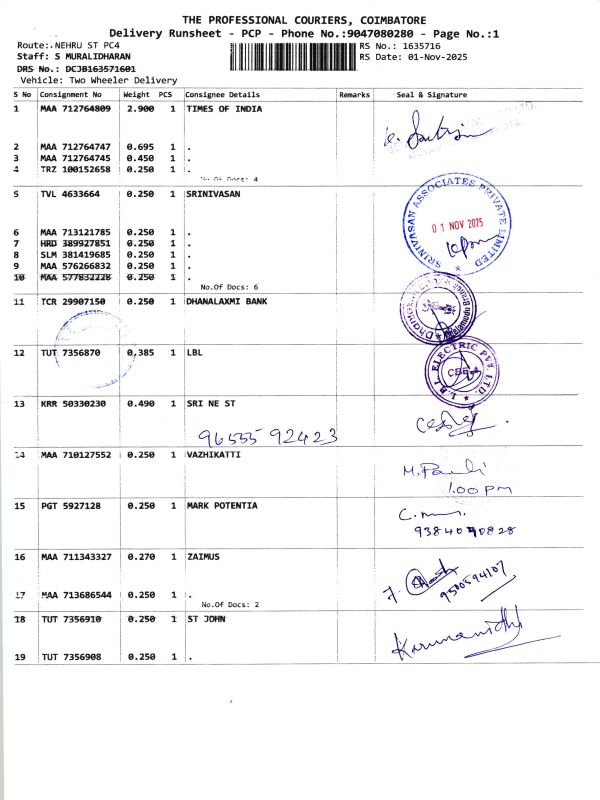 THE PROFESSIONAL COURIERS, COIMBATORE
Delivery Runsheet - PCP - Phone No.:9047080280 - Page No.:1
Route:. NEHRU ST PC4 RS No.: 1635716
Staff: S MURALIDHARAN RS Date: 01-Nov-2025
DRS No.: DCJB163571601
Vehicle: Two Wheeler Delivery
S No Consignment No Weight PCS Consignee Details Remarks Seal & Signature
1 MAA 712764809 2.900 1 TIMES OF INDIA
2 MAA 712764747 0.695 1 .
3 MAA 712764745 0.450 1 .
4 TRZ 100152658 0.250 1 .
No.Of Docs: 4
5 TVL 4633664 0.250 1 SRINIVASAN
SRINIVASAN ASSOCIATES PRIVATE LIMITED
01 NOV 2025
6 MAA 713121785 0.250 1 .
7 HRD 389927851 0.250 1 .
8 SLM 381419685 0.250 1 .
9 MAA 576266832 0.250 1 .
10 MAA 577832228 0.250 1 .
No.Of Docs: 6
11 TCR 29907150 0.250 1 DHANALAXMI BANK
12 TUT 7356870 0.385 1 LBL
ELECTRIC PVT. LTD.
13 KRR 50330230 0.490 1 SRI NE ST
96555 92423
14 MAA 710127552 0.250 1 VAZHIKATTI
1.00 PM
15 PGT 5927128 0.250 1 MARK POTENTIA
16 MAA 711343327 0.270 1 ZAIMUS
9500594107
17 MAA 713686544 0.250 1 .
No.Of Docs: 2
18 TUT 7356910 0.250 1 ST JOHN
Karunanidhi
19 TUT 7356908 0.250 1 .